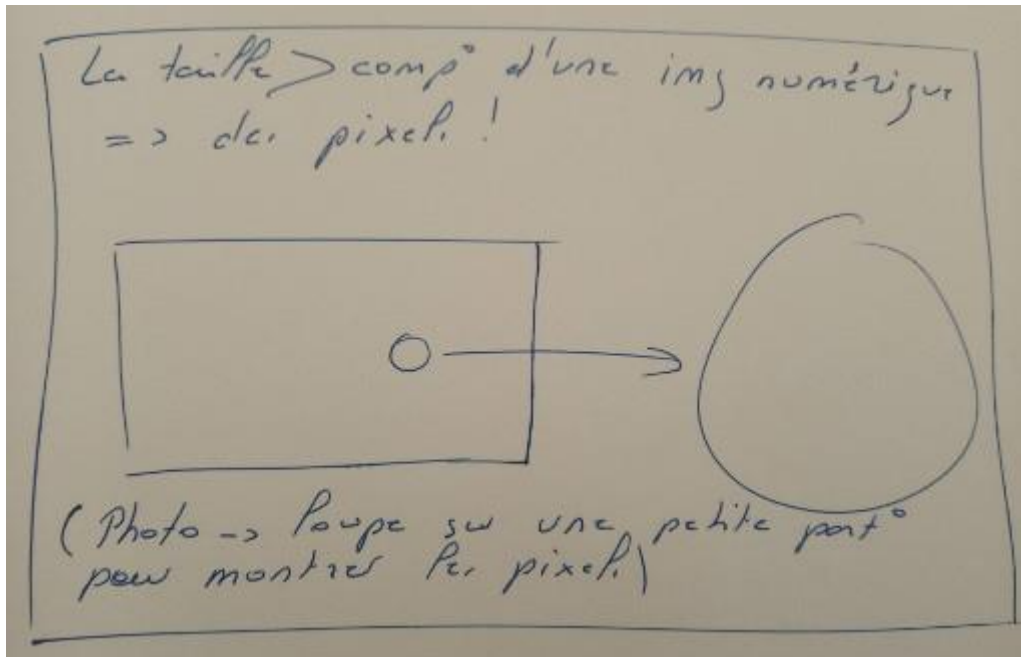 La taille > comp° d'une img numérique
=> des pixels !
(Photo -> loupe sur une petite part°
pour montrer les pixels)